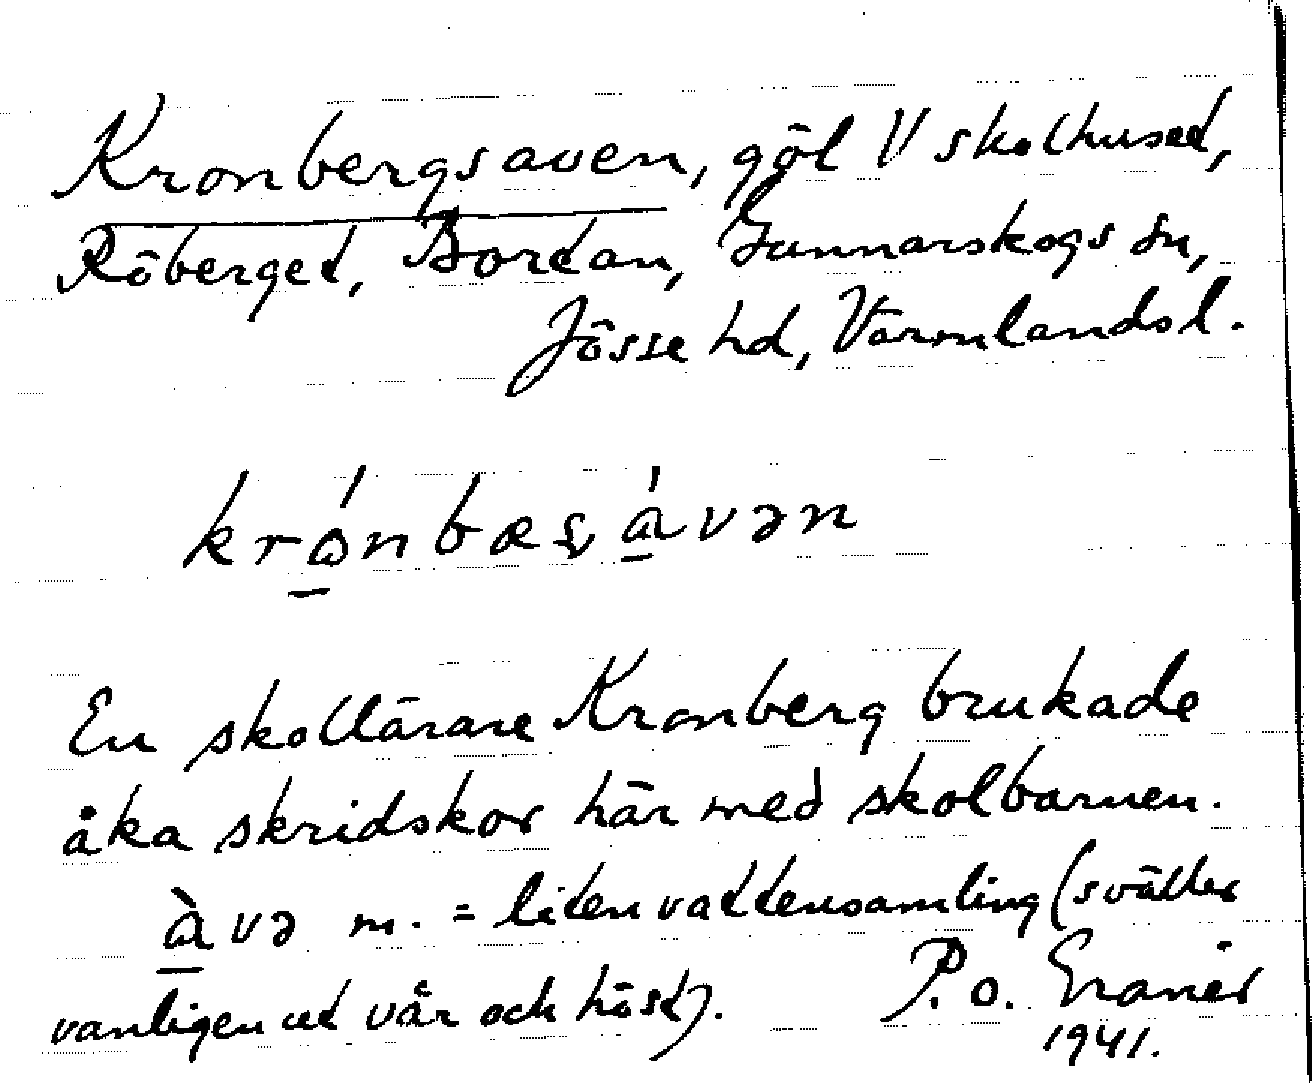 Kronbergsaven, göl V skolhuset,
Röberget, Bortan, Gunnarskogs sn,
Jösse hd, Värmlands l.
krǫ́nbæʂą́vən
En skollärare Kronberg brukade
åka skridskor här med skolbarnen.
À̱və m. = liten vattensamling (svätter
vanligen ut vår och höst).
P.o. Granér
1941.